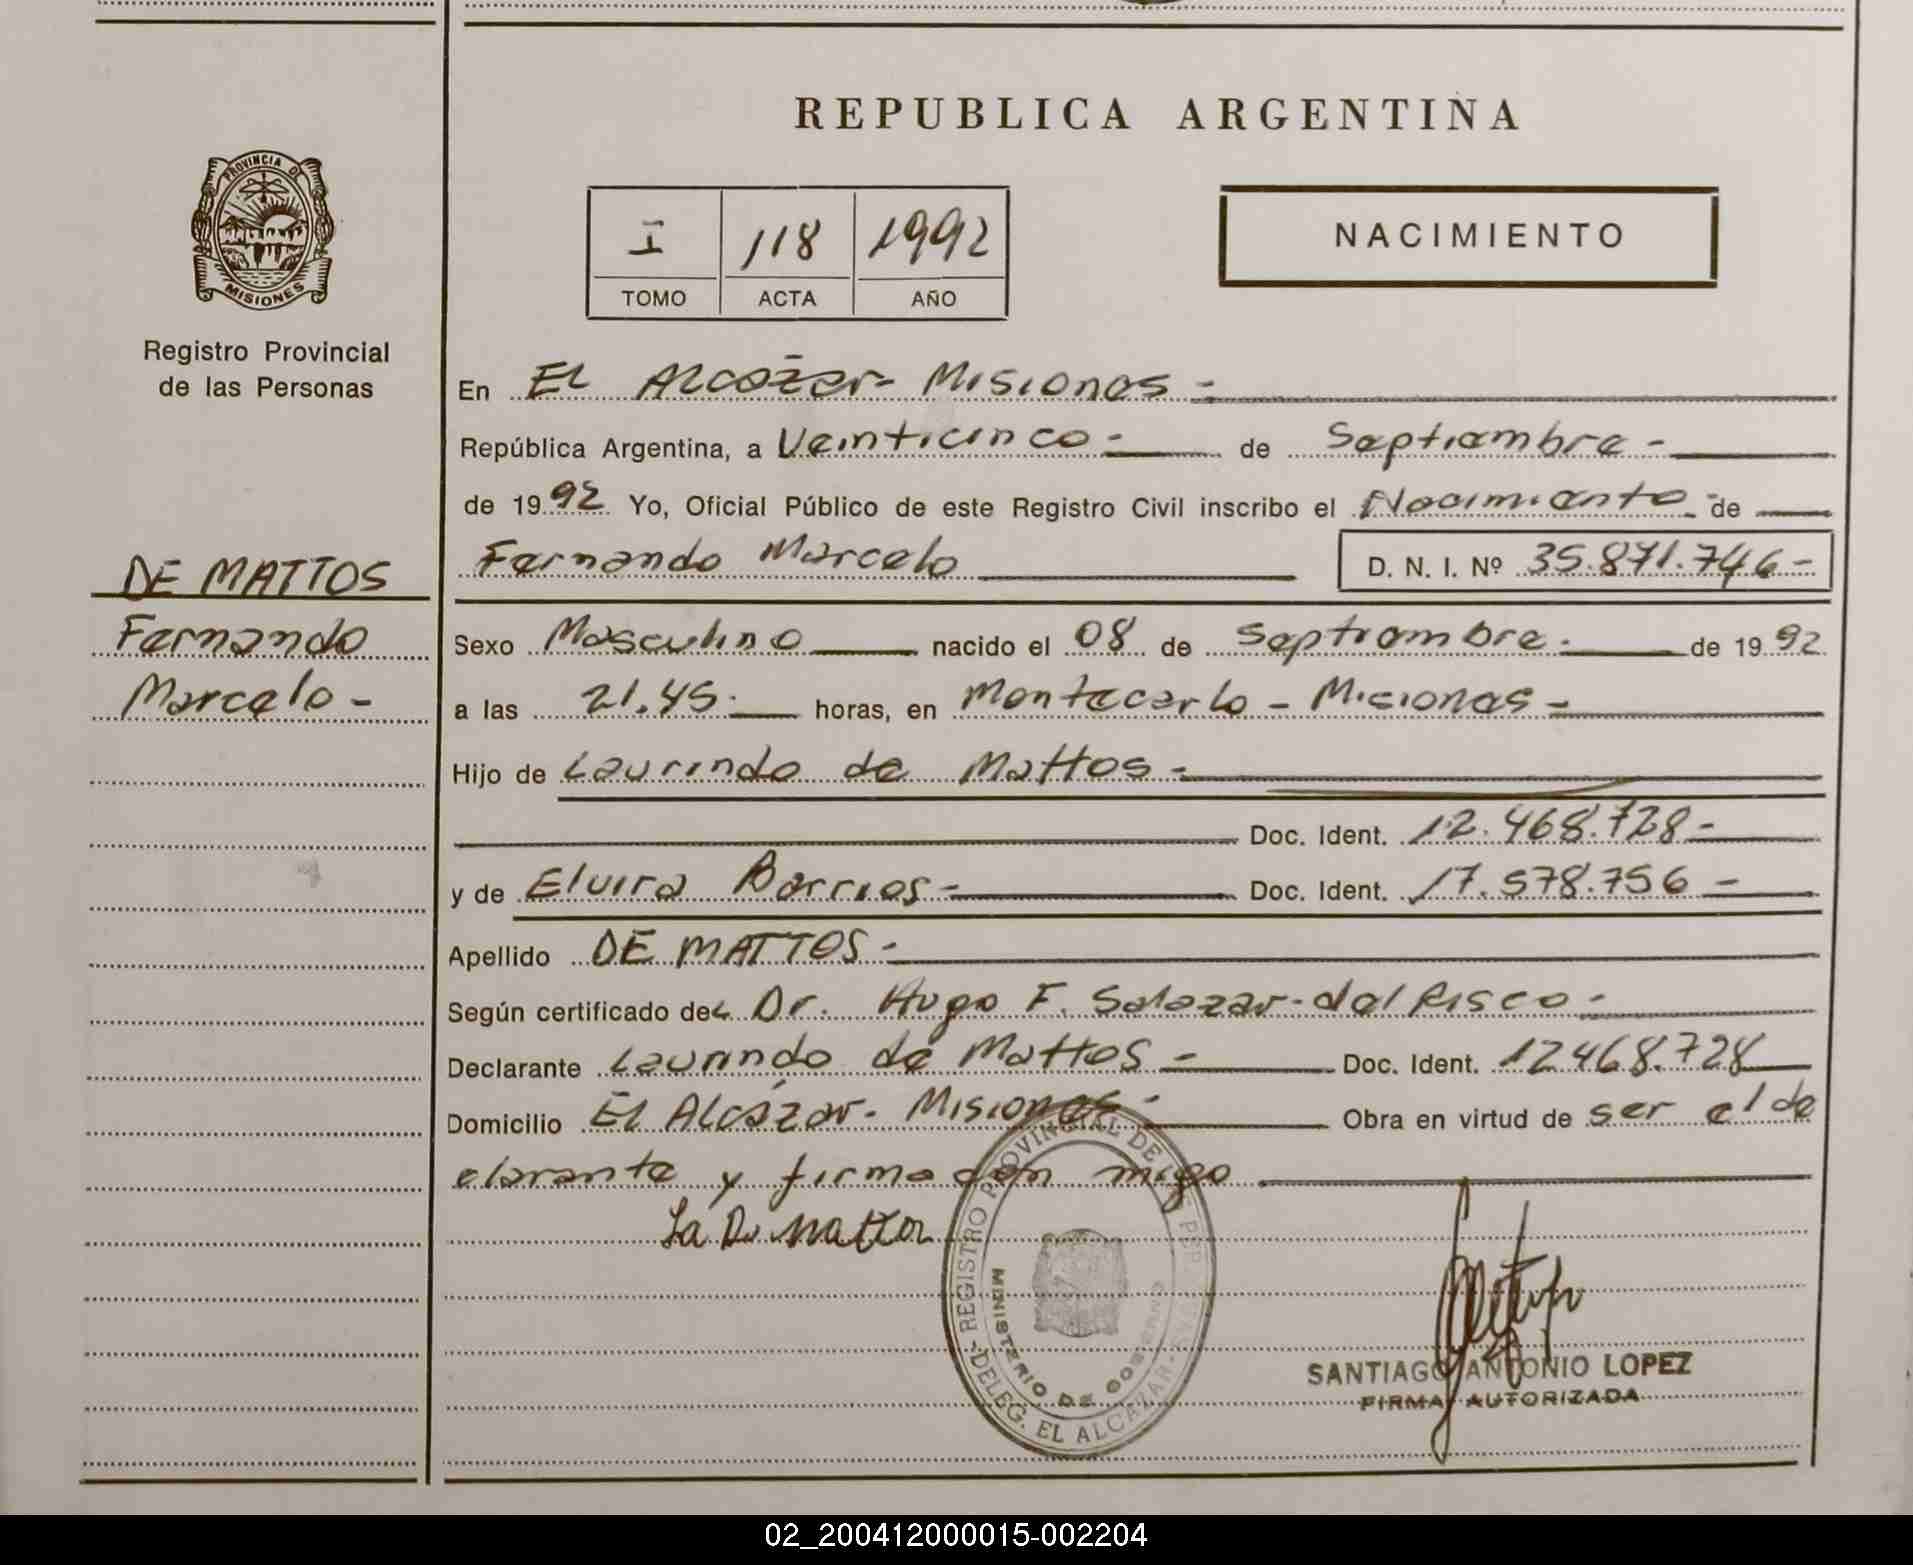 REPUBLICA ARGENTINA
PROVINCIA DE
MISIONES
Registro Provincial
de las Personas
DE MATTOS
Fernando
Marcelo -
I 118 1992
TOMO ACTA AÑO
NACIMIENTO
En EL Alcázar - Misiones -
República Argentina, a Veinticinco - de Septiembre -
de 1992 Yo, Oficial Público de este Registro Civil inscribo el Nacimiento - de
Fernando Marcelo D. N. I. Nº 35.871.746 -
Sexo Masculino nacido el 08 de Septiembre - de 1992
a las 21.45 - horas, en Montecarlo - Misiones -
Hijo de Laurindo de Mattos -
Doc. Ident. 12.468.728 -
y de Elvira Barrios - Doc. Ident. 17.578.756 -
Apellido DE MATTOS -
Según certificado del Dr. Hugo F. Salazar - del Risco -
Declarante Laurindo de Mattos - Doc. Ident. 12468.728
Domicilio El Alcázar - Misiones - Obra en virtud de ser el de
clarante y firma con migo
La D. Mattos
REGISTRO PROVINCIAL DE PERSONAS
MINISTERIO DE GOBIERNO
DELEG. EL ALCAZAR
SANTIAGO ANTONIO LOPEZ
FIRMA AUTORIZADA
02_200412000015-002204